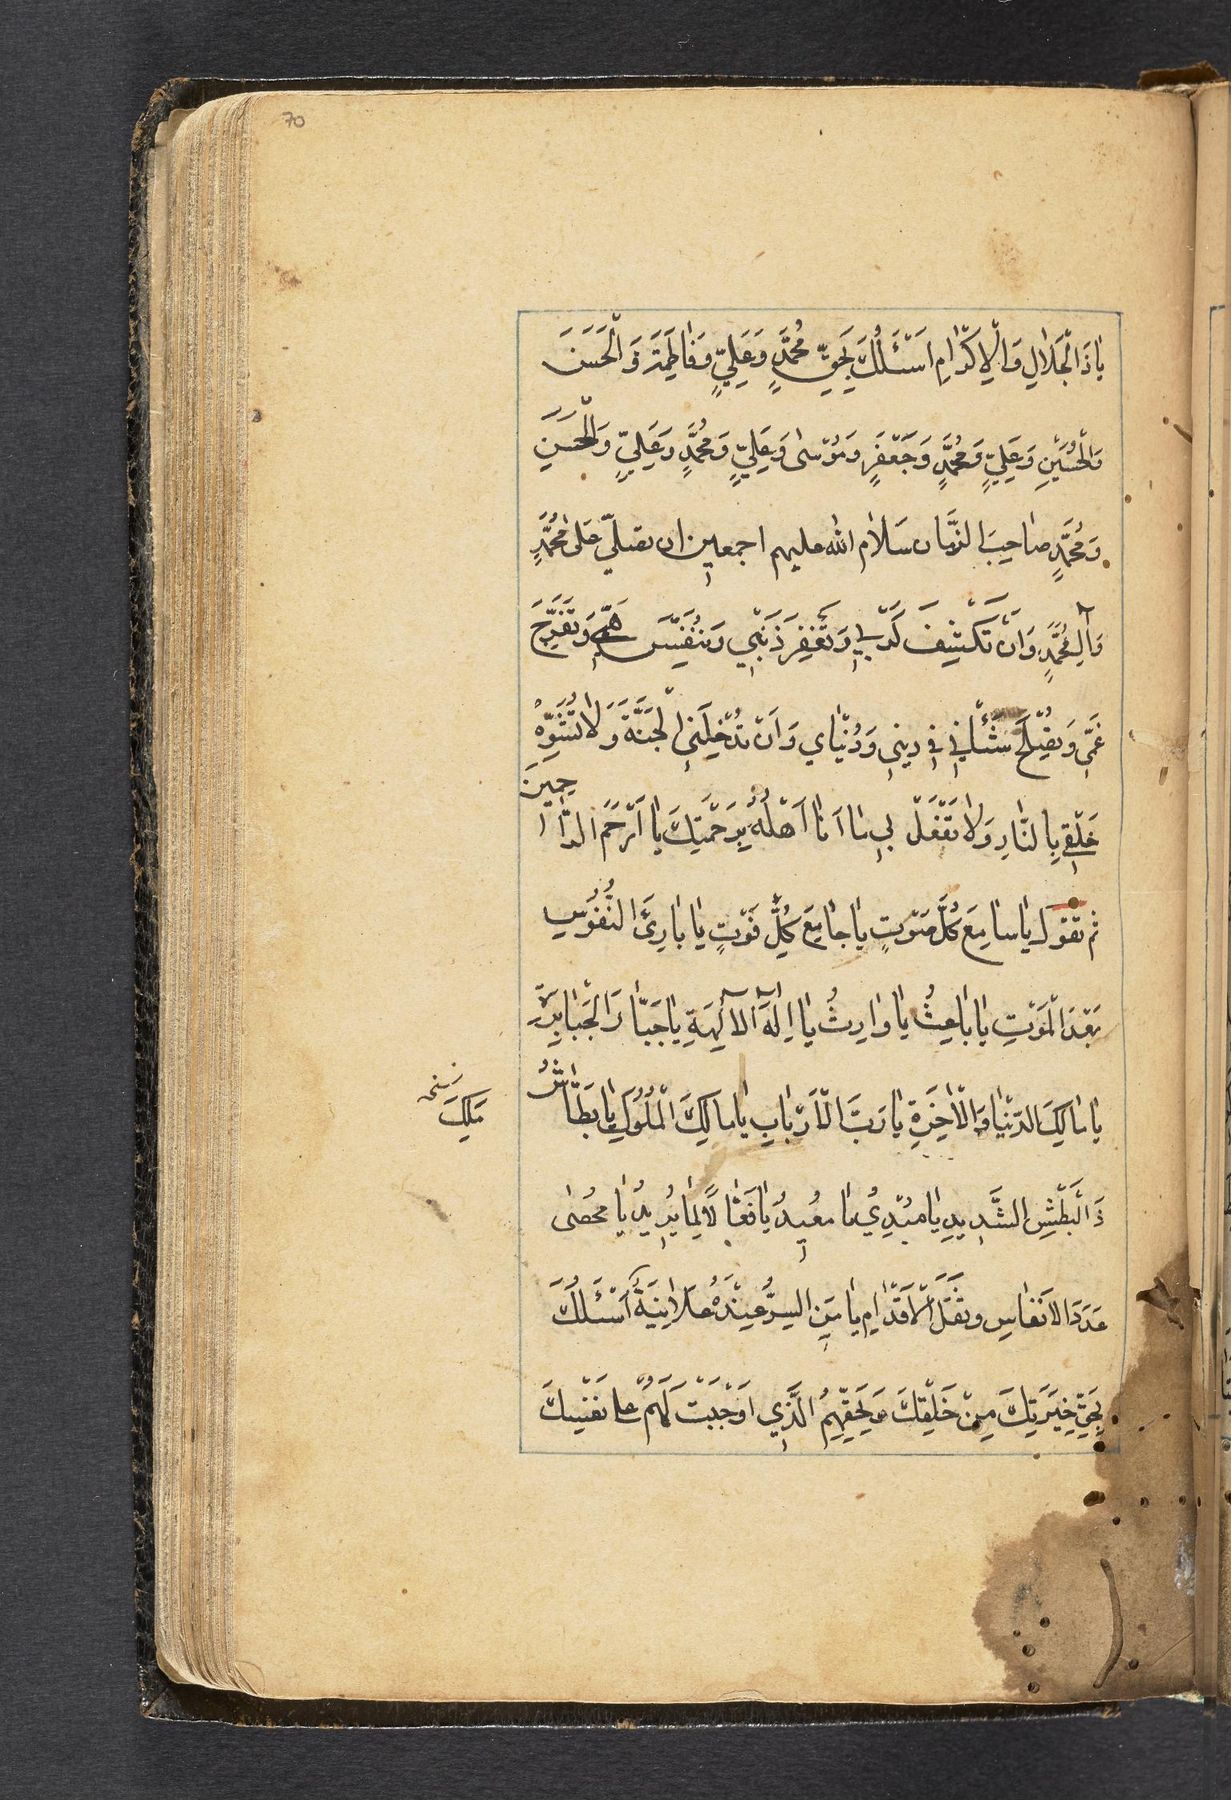 70
يٰا ذَا الْجَلٰالِ وَالْاِكْرٰامِ اَسْئَلُكَ بِحَقِّ مُحَمَّدٍ وَعَلِيٍّ وَفٰاطِمَةَ وَالْحَسَنَ
وَالْحُسَيْنِ وَعَلِيٍّ وَمُحَمَّدٍ وَجَعْفَرٍ وَمُوْسٰى وَعَلِيٍّ وَمُحَمَّدٍ وَعَلِيٍّ وَالْحَسَنِ
وَمُحَمَّدٍ صٰاحِبَ الزَّمٰان سَلٰام اللّٰه عليهم اجمعين ان تصلّي عَلىٰ مُحَمَّدٍ
وَآلِ مُحَمَّدٍ وَاَنْ تَكْشِفَ كَرْبي وَتَغْفِرَ ذَنْبي وَتُنَفِّسَ هَمّي وَتُفَرِّجَ
غَمّي وَتُصْلِحَ شَئْاني في ديني وَدُنْيٰاي وَاَنْ تُدْخِلَني الْجَنَّةَ وَلٰا تُشَوِّهْ
خَلْقي بِالنّٰارِ وَلٰا تَفْعَلْ بي مٰا اَنٰا اَهْلُهُ بِرَحْمَتِكَ يٰا اَرْحَمَ الرّٰاحِمينَ
ثم تقول يٰا سٰامِعَ كُلَّ صَوْتٍ يٰا جٰامِعَ كُلَّ فَوْتٍ يٰا بٰارِئَ النُّفُوسِ
بَعْدَ الْمَوْتِ يٰا بٰاعِثُ يٰا وٰارِثُ يٰا اِلٰهَ الآلِهَةِ يٰا جَبّٰارَ الْجَبٰابِرَةِ
يٰا مٰالِكَ الدّنْيٰا وَالْاٰخِرَةِ يٰا رَبَّ الْاَرْبٰابِ يٰا مٰالِكَ الْمُلُوكِ يٰا بَطّٰاشُ
مَلِكَ نسخه
ذَا الْبَطْشِ الشَّدِيدِ يٰا مُبْدِئُ يٰا مُعيدُ يٰا فَعّٰالًا لِمٰا يُريدُ يٰا مُحْصىٰ
عَدَدَ الاَنفٰاسِ وَنَقْلَ الْاَقْدٰامِ يٰا مَنِ السِّرُّ عِنْدَهُ عَلٰانِيَةٌ اَسْئَلُكَ
بِحَقِّ خِيَرَتِكَ مِنْ خَلْقِكَ وَبِحَقِّهِمُ الَّذي اَوْجَبْتَ لَهُمْ عَلىٰ نَفْسِكَ